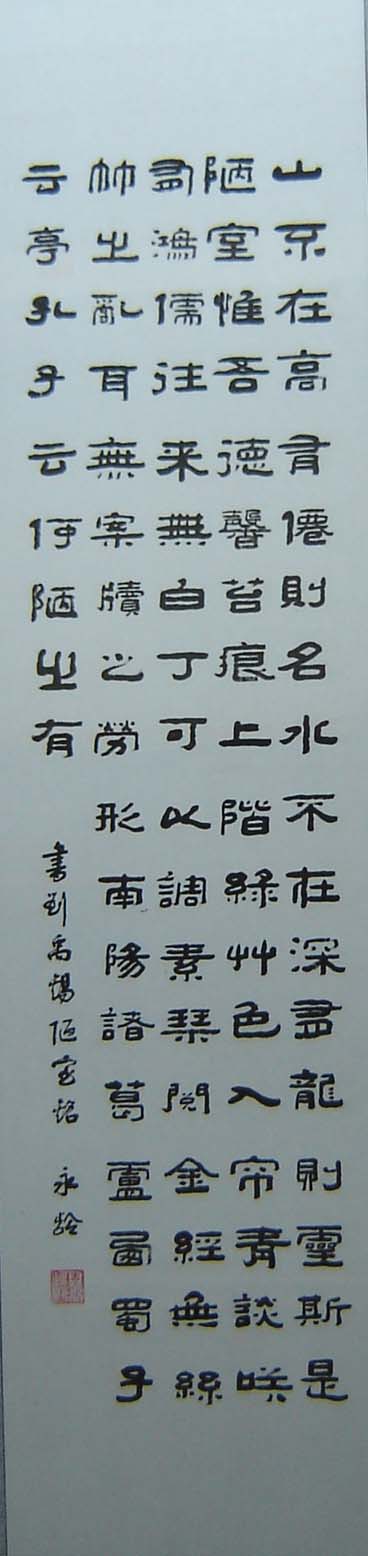 山不在高有僊則名水不在深有龍則靈斯是
陋室惟吾德馨苔痕上階綠艸色入帘青談咲
有鴻儒往来無白丁可以調素琴閱金經無絲
竹之亂耳無案牘之勞形南陽諸葛廬西蜀子
云亭孔子云何陋之有
書劉禹錫陋室銘 永齡